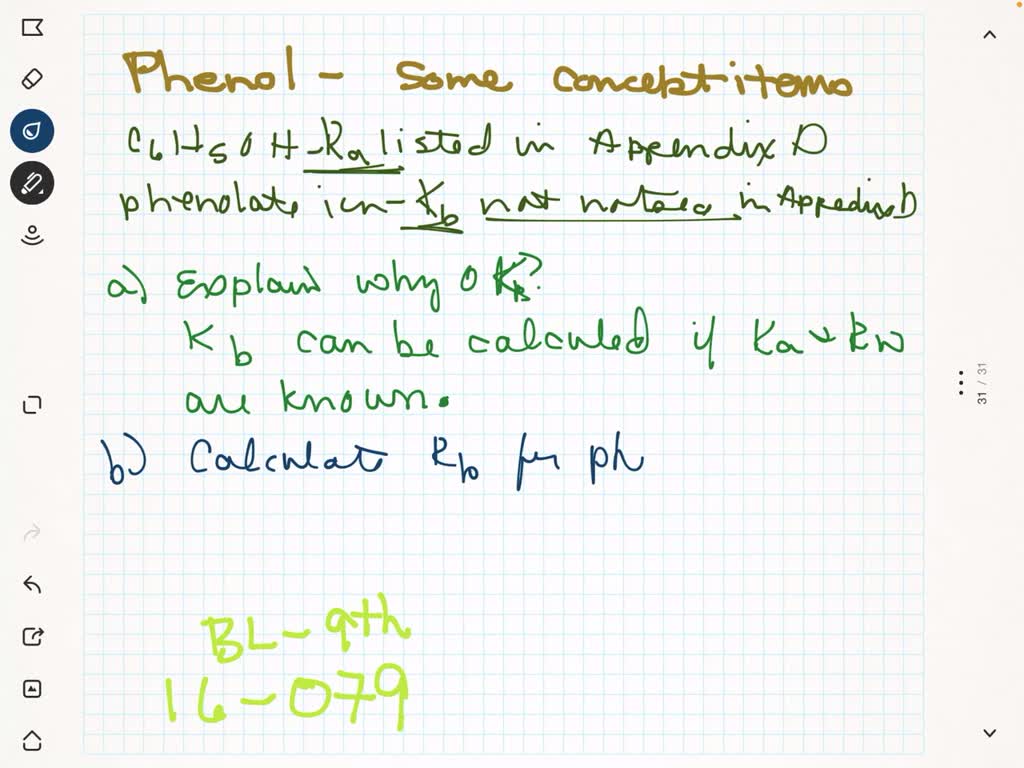 Phenol - Some concept items
C6H5OH - Ka listed in Appendix D
phenolate ion - Kb not noted in Appedix D
a) Explain why 0 KB?
Kb can be calculed if Ka + Kw
are known.
b) Calculate Kb for ph
BL - 9th
16-079
31 / 31